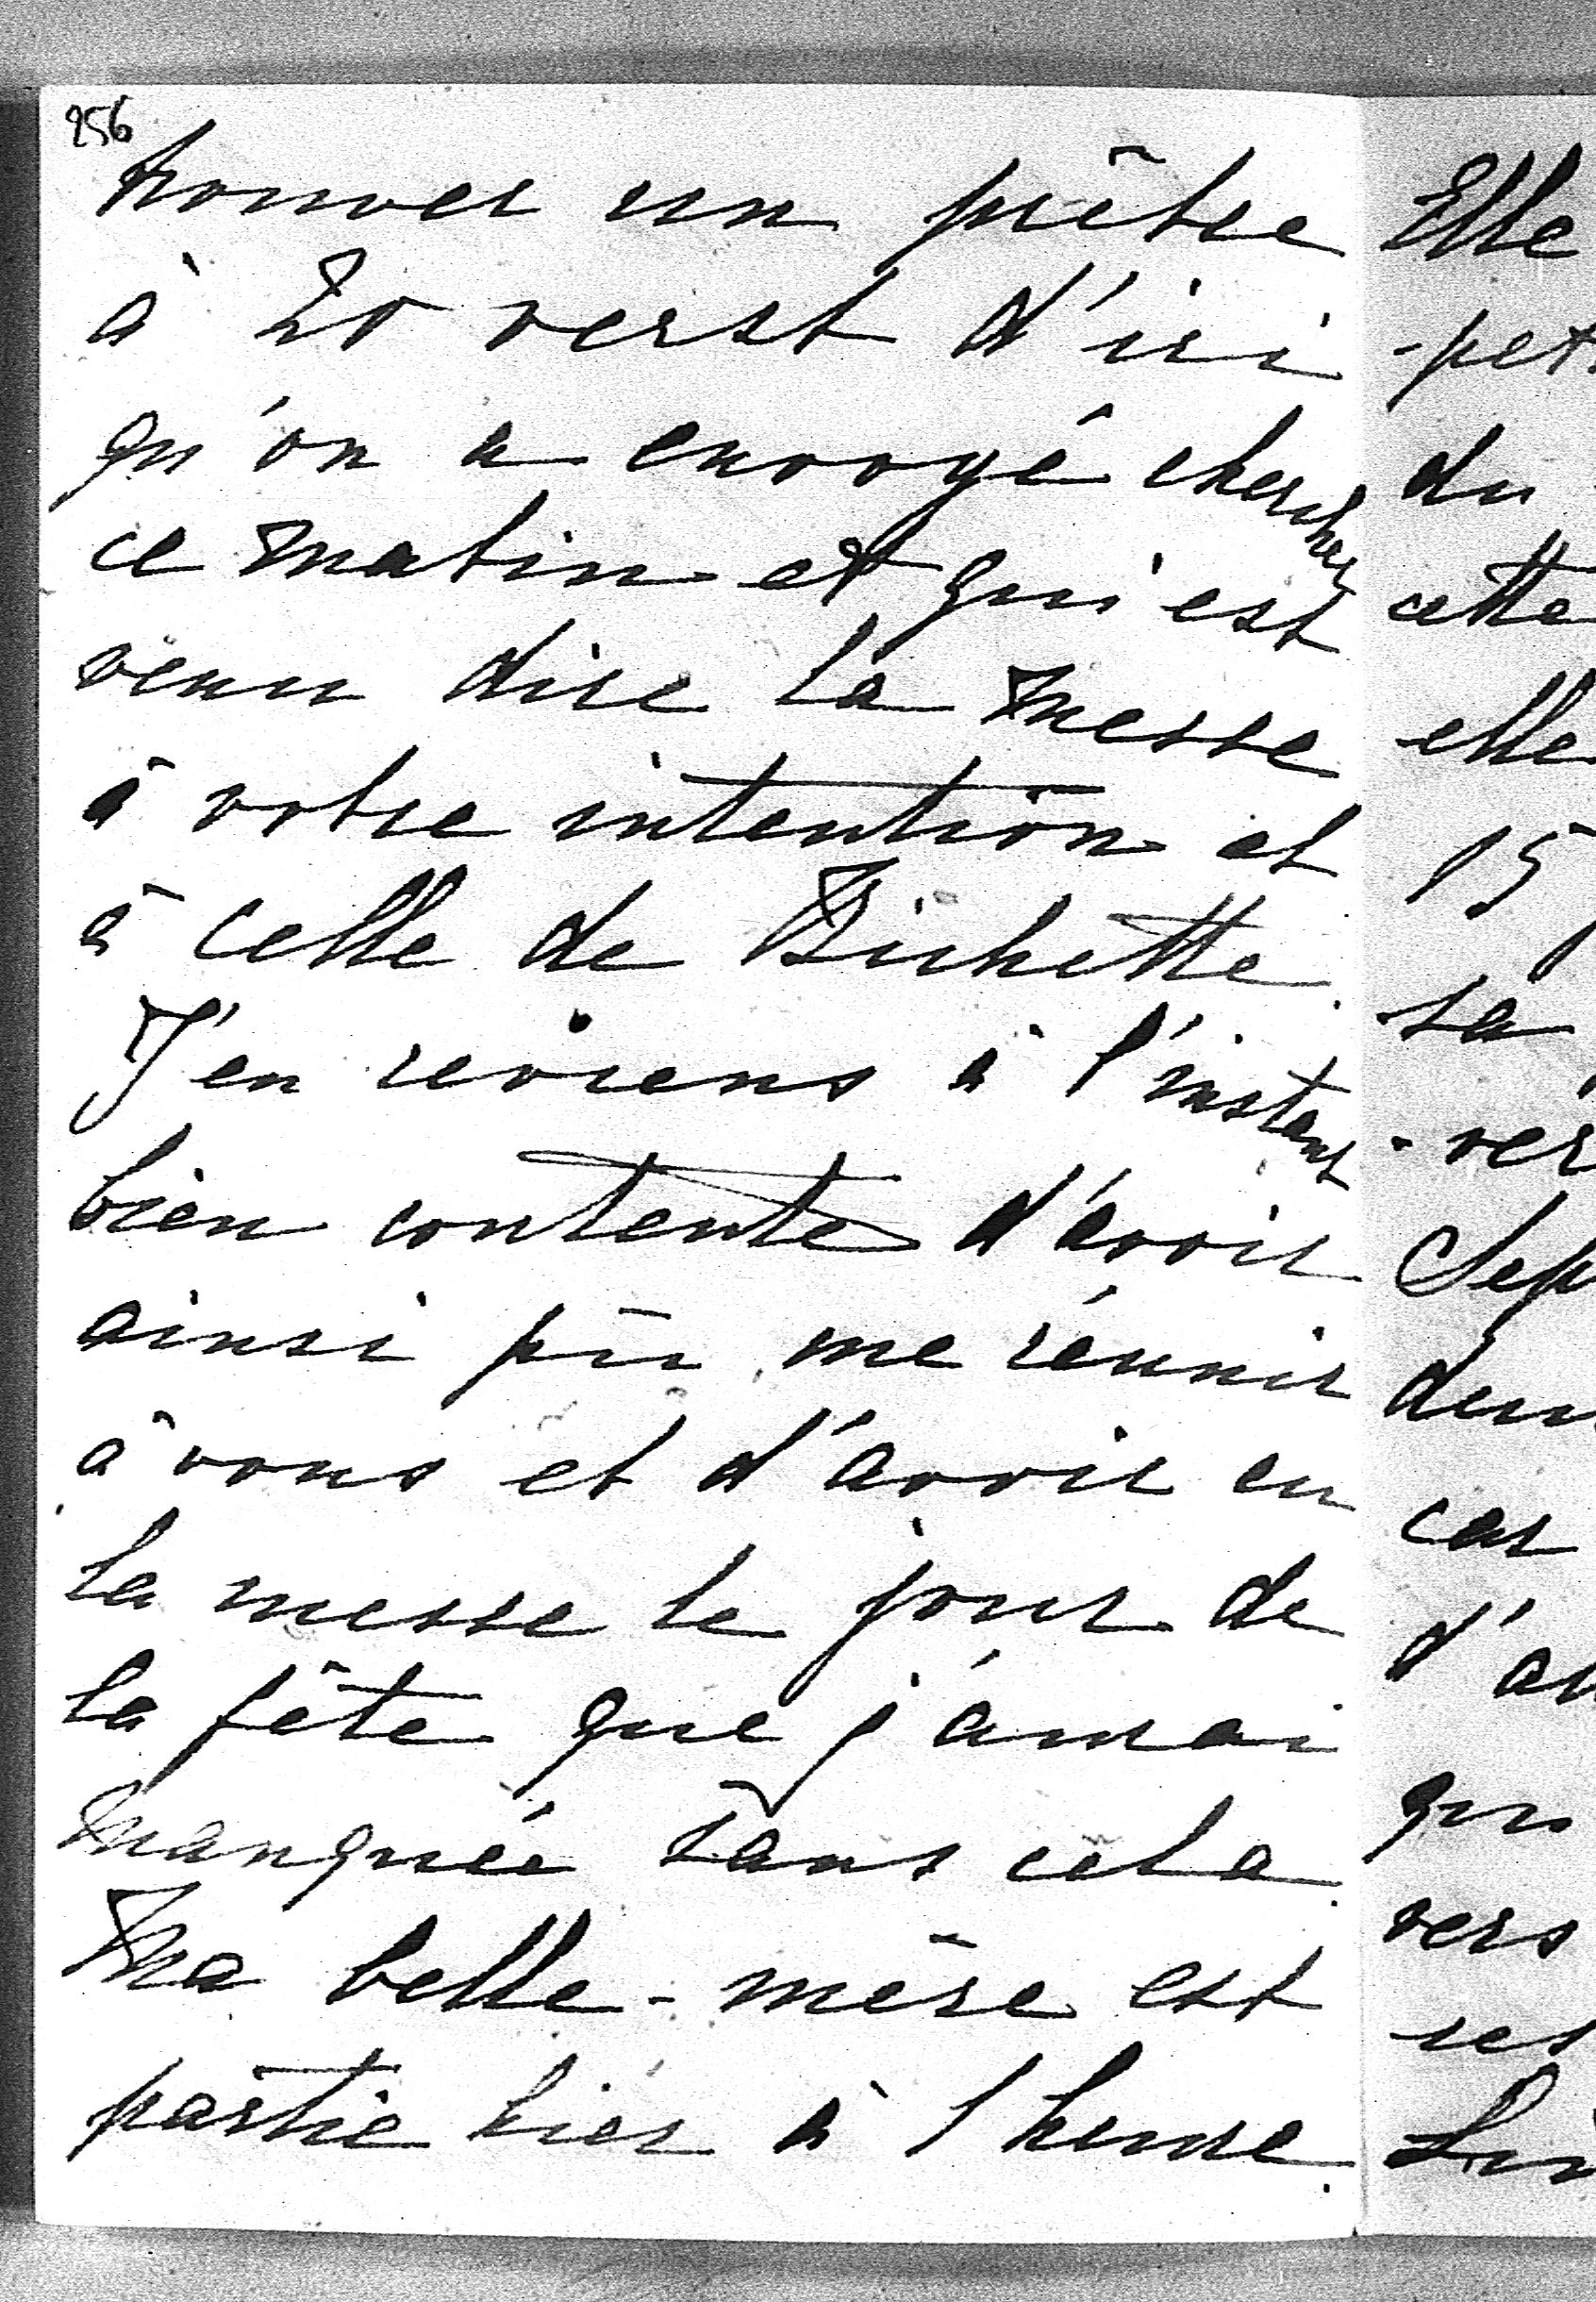 256
trouver un prêtre
à 20 verst d'ici
qu'on a envoyé chercher
ce matin et qui est
venu dire la messe
à votre intention et
à celle de Bichette.
J'en reviens à l'instant
bien contente d'avoir
ainsi pû me réunir
à vous et d'avoir eu
la messe le jour de
la fête que j'aurai
manquée sans cela.
Ma belle-mère est
partie hier à 1 heure.
Elle
-pet
du
cette
elle
15
sa
-ver
Sep
deu
car
d'av
qu
vers